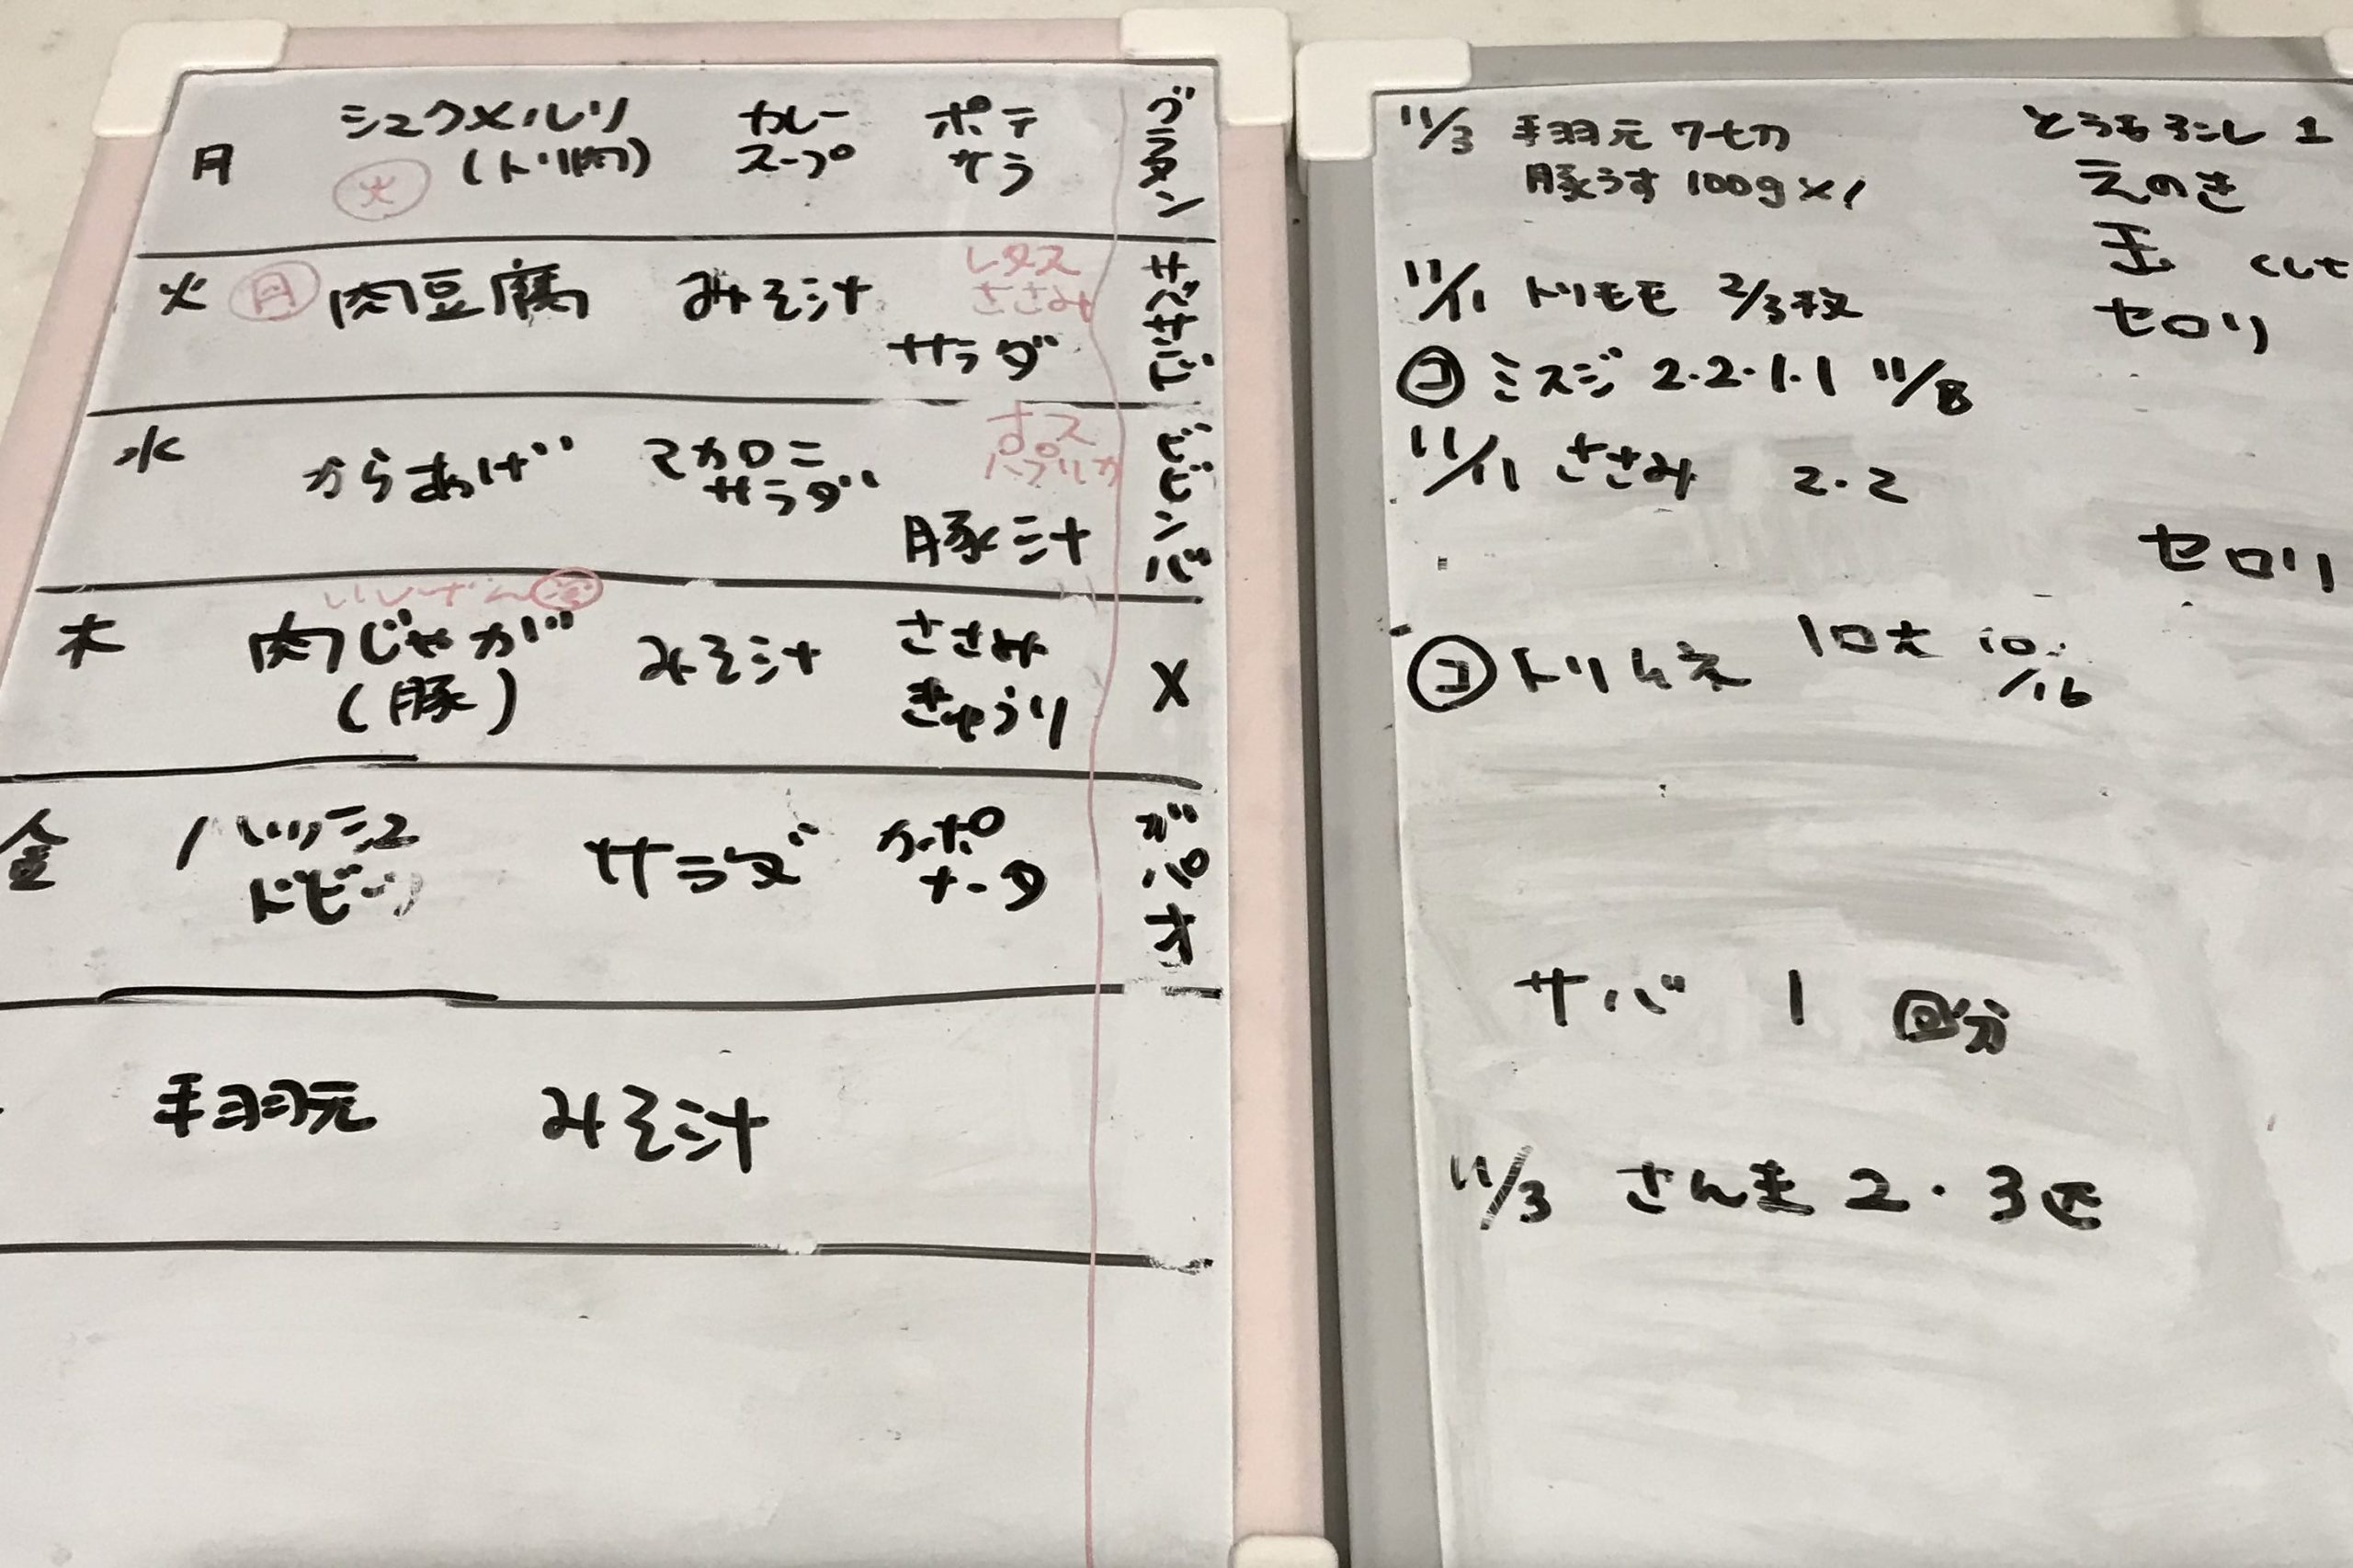 月 シュクメルリ カレー ポテ
(トリ肉) スープ サラ
火
グラタン
火 月 肉豆腐 みそ汁 レタス
ささみ
サラダ
水 からあげ マカロニ
サラダ
パプリカ
豚汁
ビビンバ
木 肉じゃが みそ汁 ささみ
(豚) きゅうり
X
金 ハッシュ サラダ
ドビー
ガパオ
手羽元 みそ汁
11/3 手羽元 7切
豚うす 100g×1
11/11 トリモモ 2/3枚
コ ミスジ 2.2.1.1 11/8
11/11 ささみ 2.2
コ トリムネ 10大 10/16
サバ 1 回分
11/3 さんま 2.3匹
とうもろこし 1
えのき
玉
セロリ
セロリ